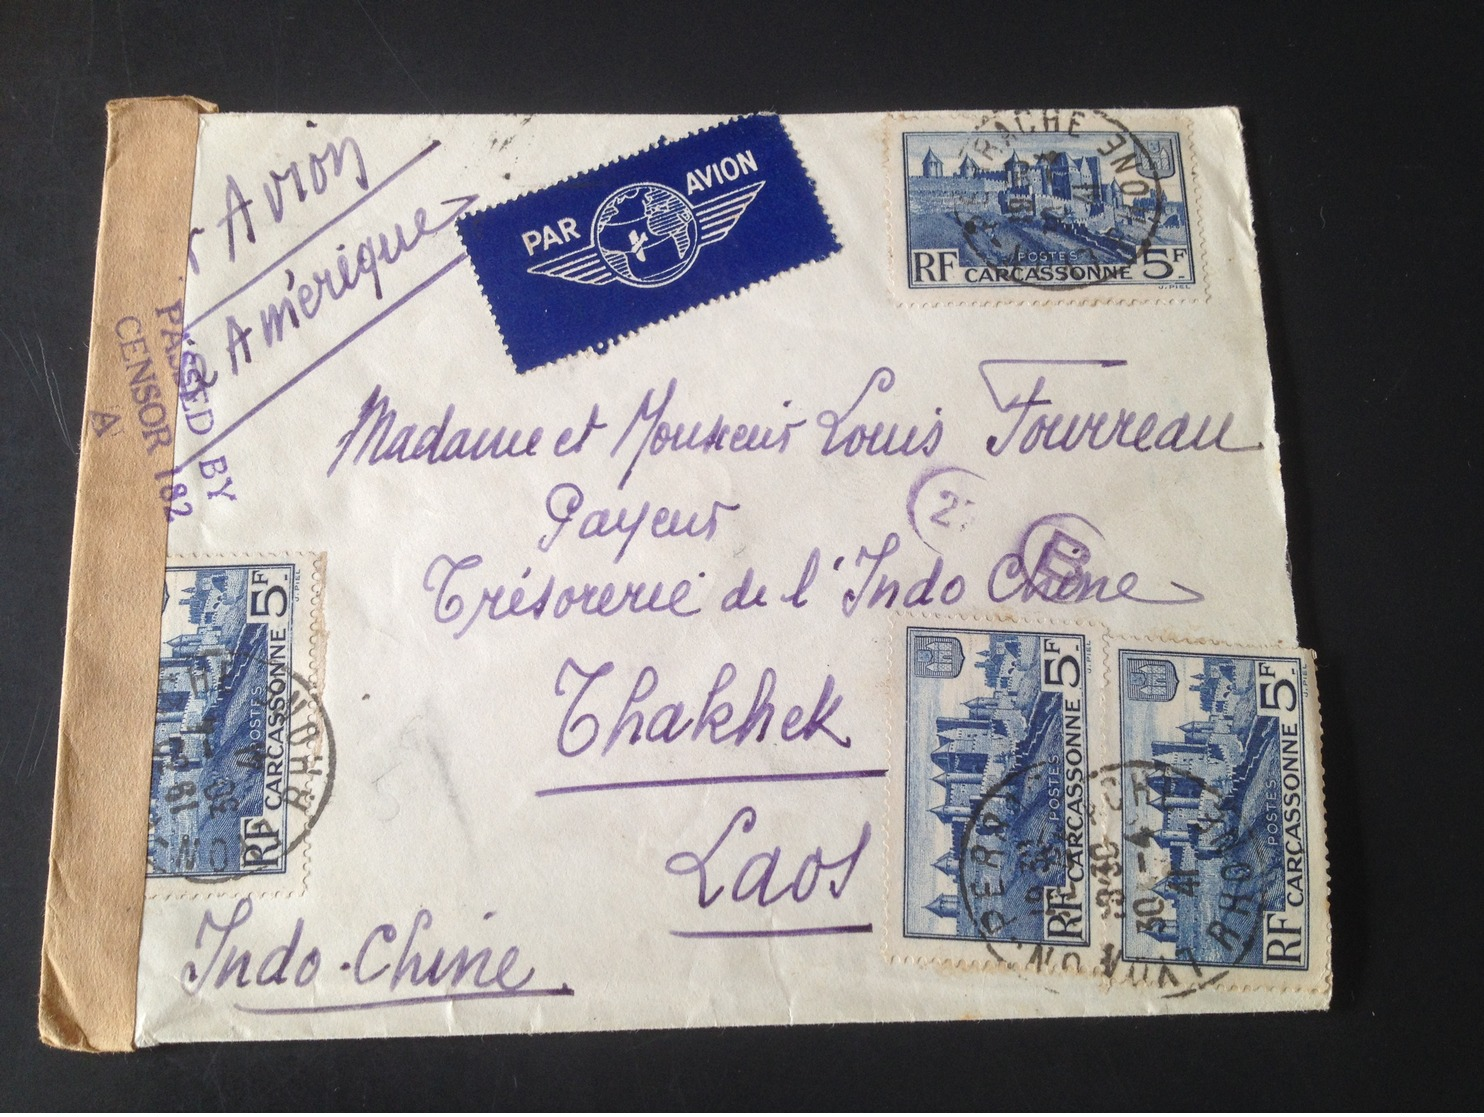 Avion
Amérique
PAR AVION
PASSED BY
CENSOR 182
A
RF POSTES 5F
CARCASSONNE
J. PIEL
Madame et Monsieur Louis Fourreau
Payeur
2
B
Trésorerie de l'Indo Chine
Thakhek
Laos
Indo-Chine
5F
J. PIEL
POSTES
CARCASSONNE
RF
RHONE
30 4 41
5F
J. PIEL
POSTES
CARCASSONNE
RF
5F
J. PIEL
POSTES
CARCASSONNE
RF
30-4 41
RHONE